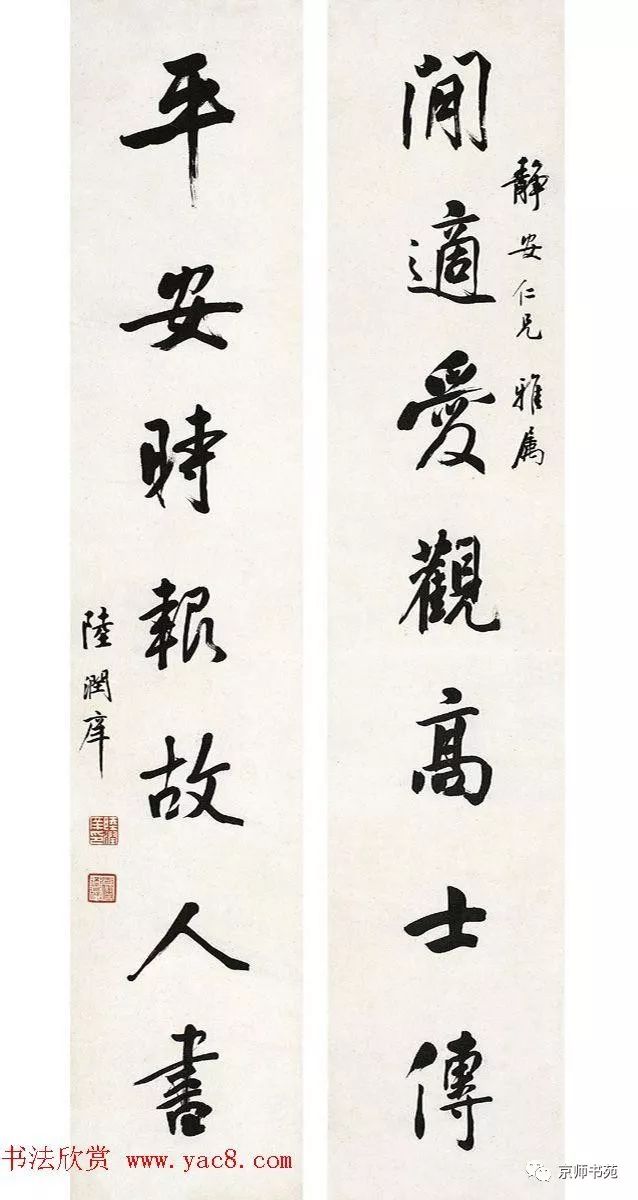 静安仁兄雅属
閒適愛觀高士傳
平安時報故人書
陸潤庠
书法欣赏 www.yac8.com
京师书苑